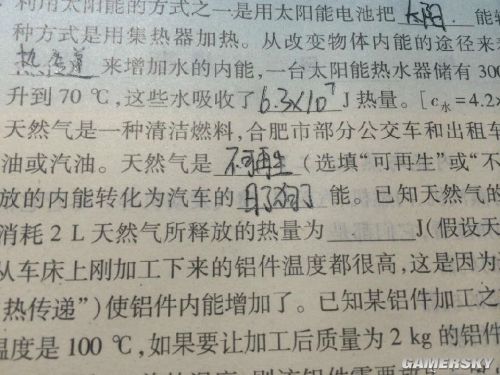 利用太阳能的方式之一是用太阳能电池把 太阳 能转
种方式是用集热器加热。从改变物体内能的途径来
热传递 来增加水的内能,一台太阳能热水器储有 300
升到 70 ℃,这些水吸收了 6.3×10⁷ J 热量。[c水=4.2×
天然气是一种清洁燃料,合肥市部分公交车和出租车
油或汽油。天然气是 不可再生 (选填“可再生”或“不
放的内能转化为汽车的 能。已知天然气的
消耗 2 L 天然气所释放的热量为 J(假设天
从车床上刚加工下来的铝件温度都很高,这是因为
热传递”)使铝件内能增加了。已知某铝件加工之
温度是 100 ℃,如果要让加工后质量为 2 kg 的铝件
GAMERSKY